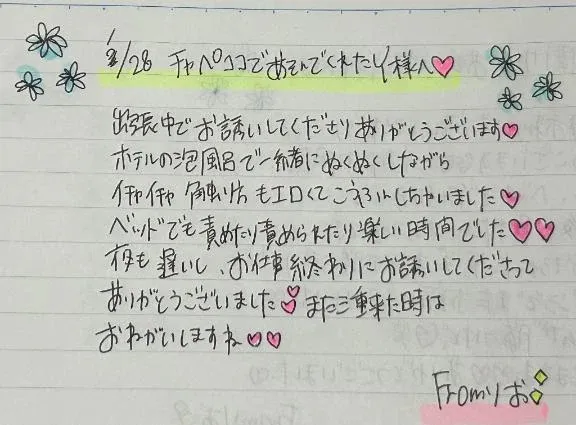 8/28 チャペロココであそんでくれたY様へ♡
出張中でお誘いしてくださりありがとうございます♡
ホテルの泡風呂で一緒にぬくぬくしながら
イチャイチャ 触い方もエロくてこうふんしちゃいました♡
ベッドでも責めたり責められたり楽しい時間でした♡♡
夜も遅いし、お仕事終わりにお誘いしてくださって
ありがとうございました♡また三重来た時は
おねがいしますね♡♡
Fromりお